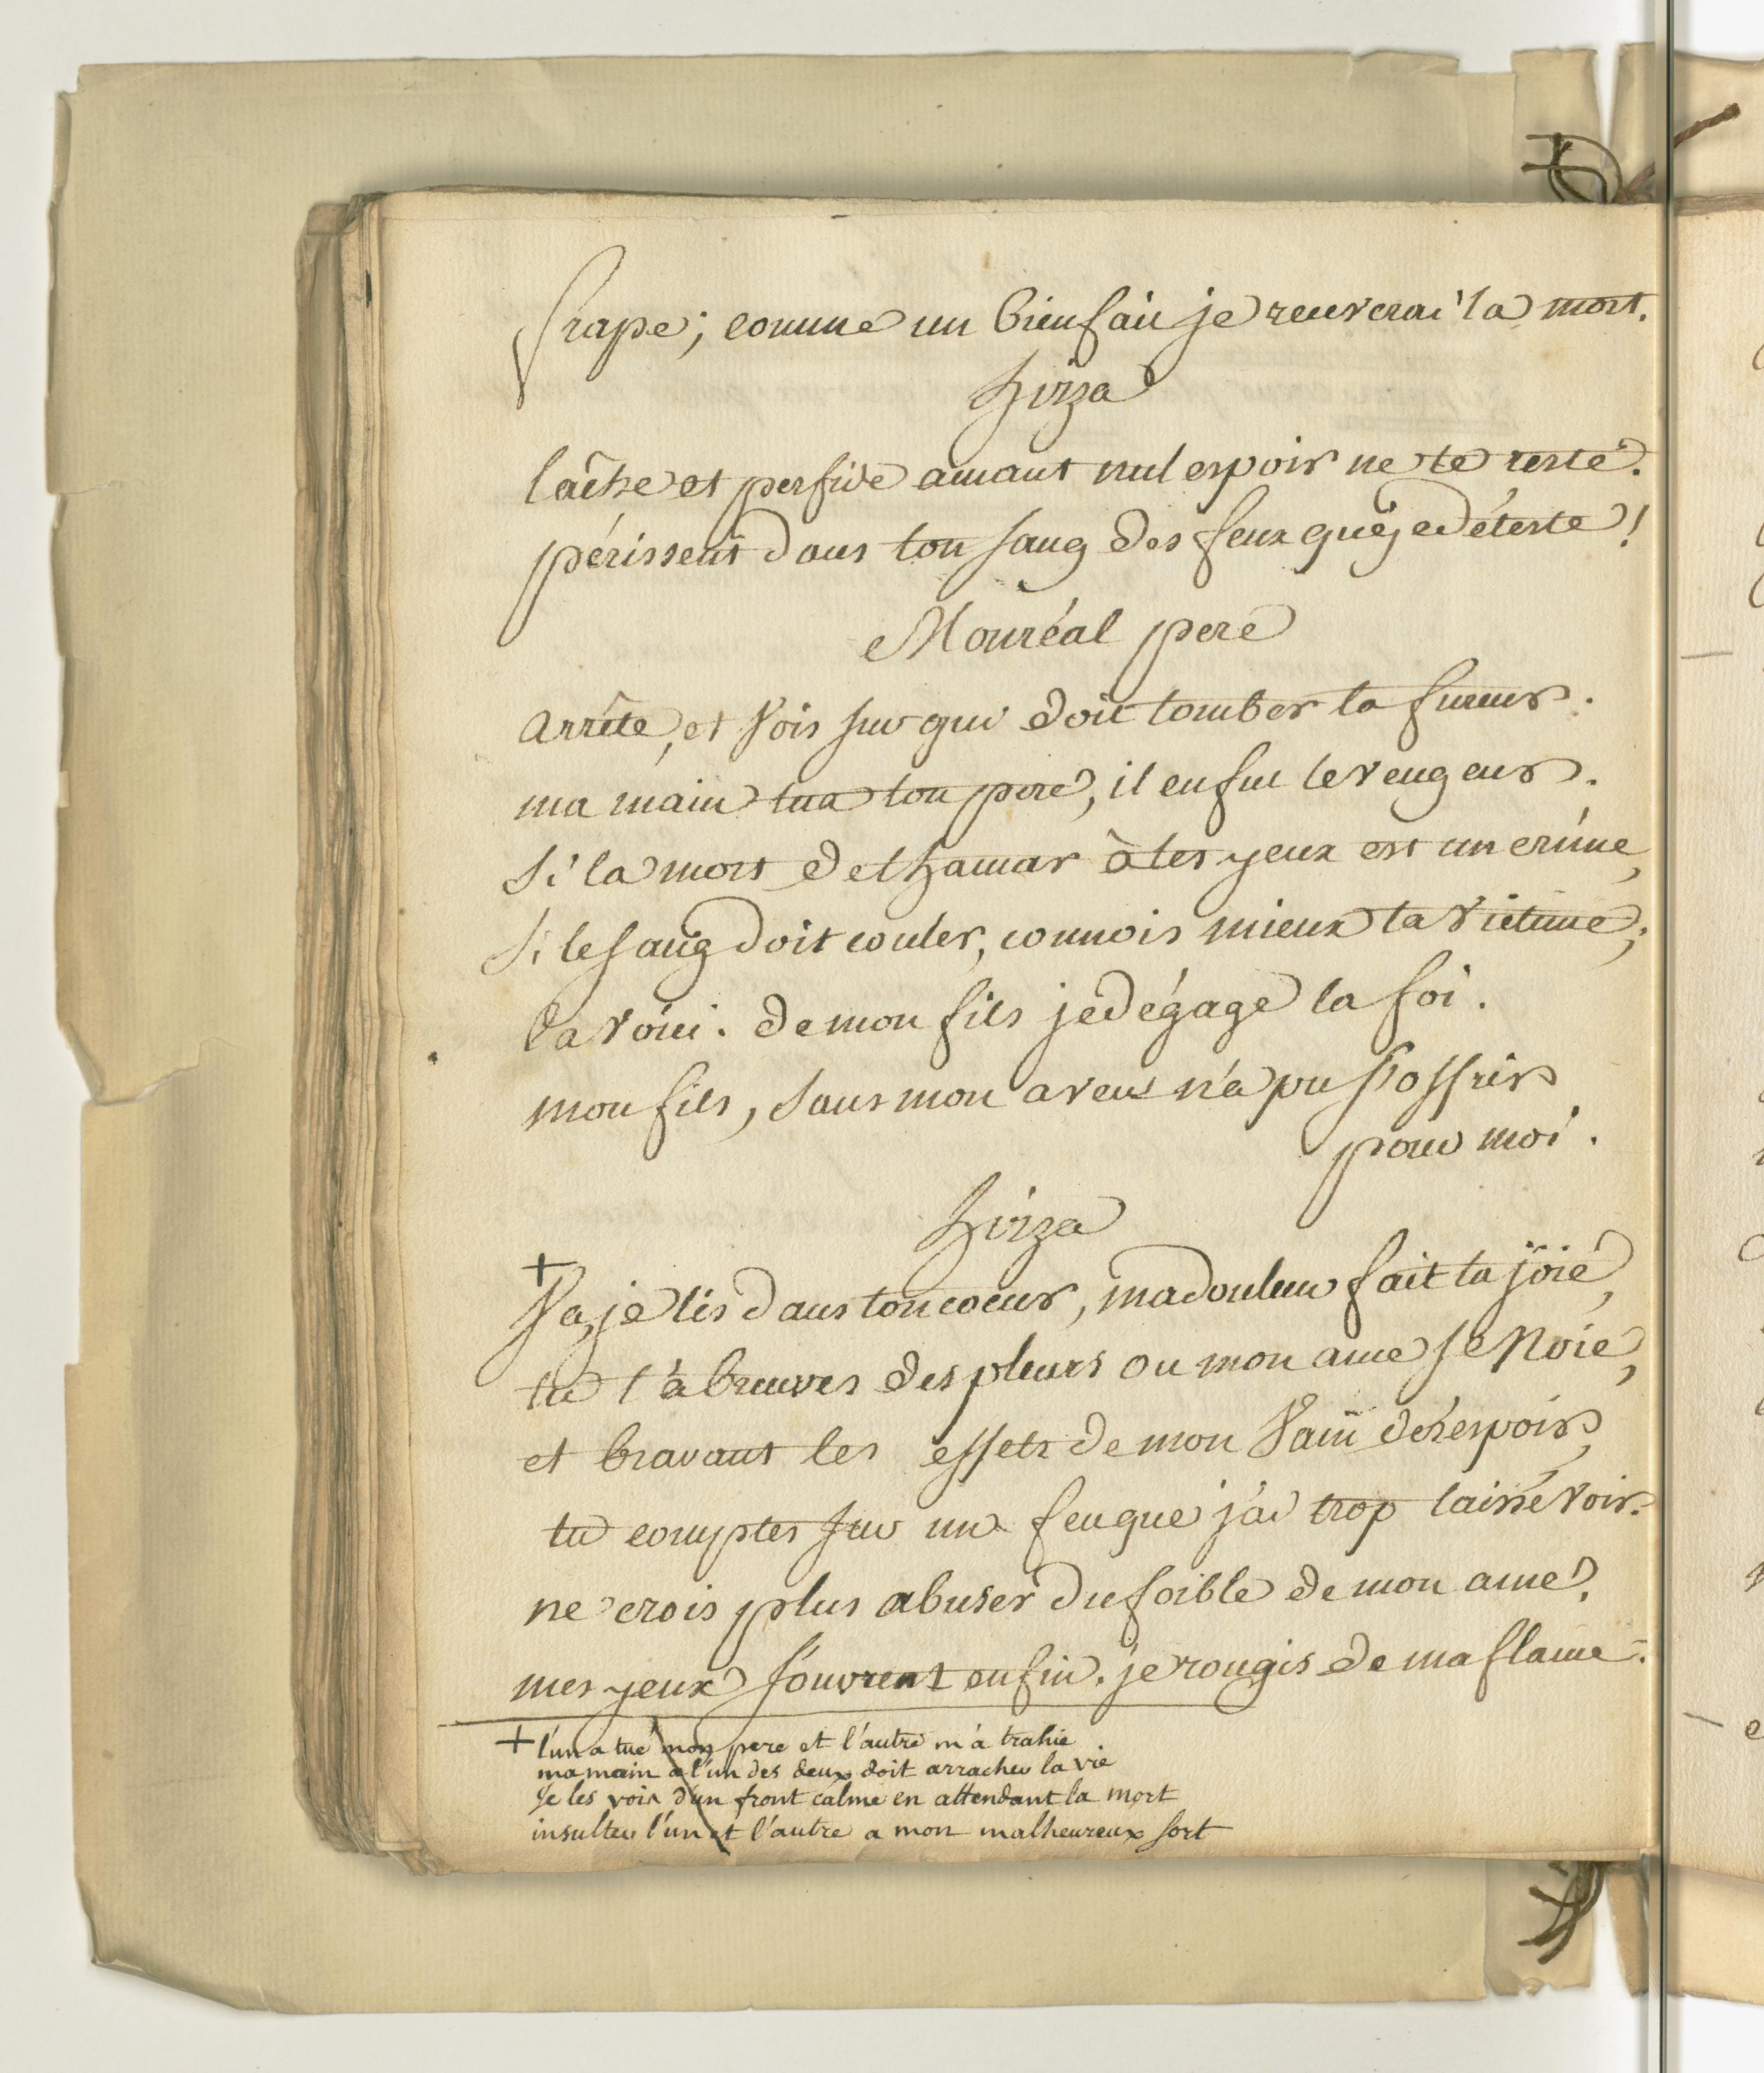 frape; comme un bienfait je recevrai la mort.
hirza
lâche et perfide amant nul espoir ne te reste.
périssent dans ton sang des feux que je déteste!
Monréal pere
arrête, et vois sur qui doit tomber ta fureur.
ma main tua ton pere, il en fut le vengeur.
Si la mort de thamar à tes yeux est un crime,
Si le sang doit couler, connois mieux ta victime;
la voici. de mon fils je dégage la foi.
mon fils, sans mon aveu n'a pu s'offrir
pour moi.
hirza
+ Va, je lis dans ton coeur, ma douleur fait ta joie,
tu t'abreuves des pleurs ou mon ame se noie,
et bravant les effets de mon vain désespoir,
tu comptes sur un feu que j'ai trop laissé voir.
ne crois plus abuser du foible de mon ame.
mes yeux s'ouvrent enfin. je rougis de ma flame.
+ l'un a tué mon pere et l'autre m'a trahie
ma main a l'un des deux doit arracher la vie
Je les vois d'un front calme en attendant la mort
insulter l'un et l'autre a mon malheureux sort